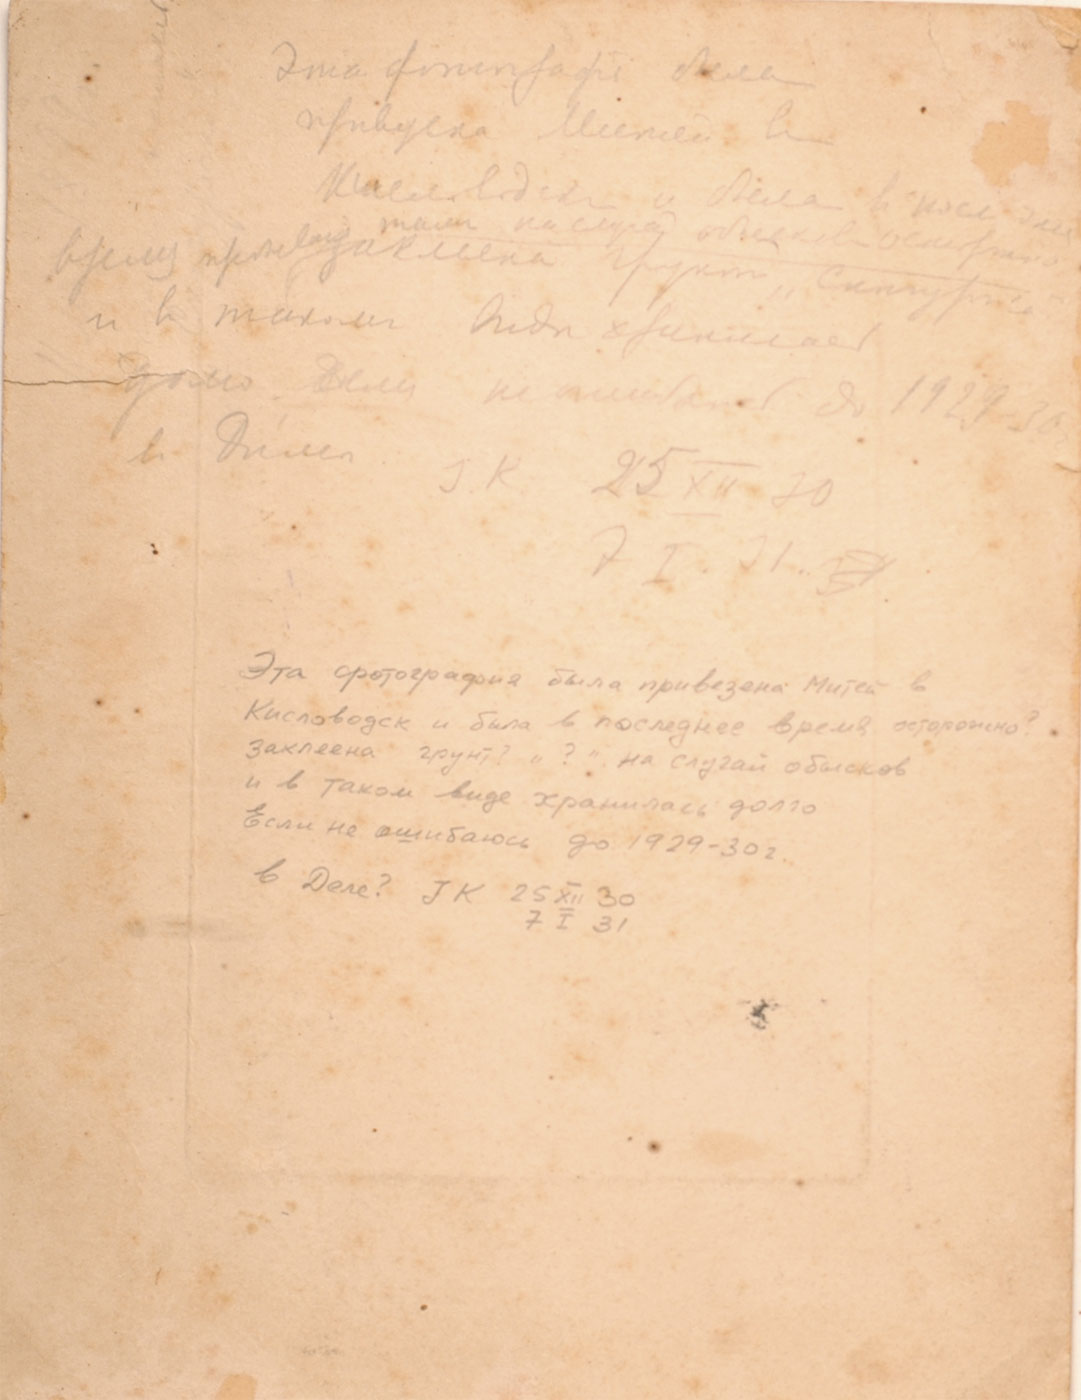 Эта фотографія была
привезена Митей в
Кисловодск и была в посл
там на случай обысков
время заклеена грунт
и в таком виде хранилась
долго Если не ошибаюсь до 1929-30г
в
J.K 25 XII 30
7 I. 31.
Эта фотография была привезена Митей в
Кисловодск и была в последнее время осторожно?
заклеена грунт? „?“ на случай обысков
и в таком виде хранилась долго
Если не ошибаюсь до 1929-30г.
в Деле? JK 25 XII 30
7 I 31